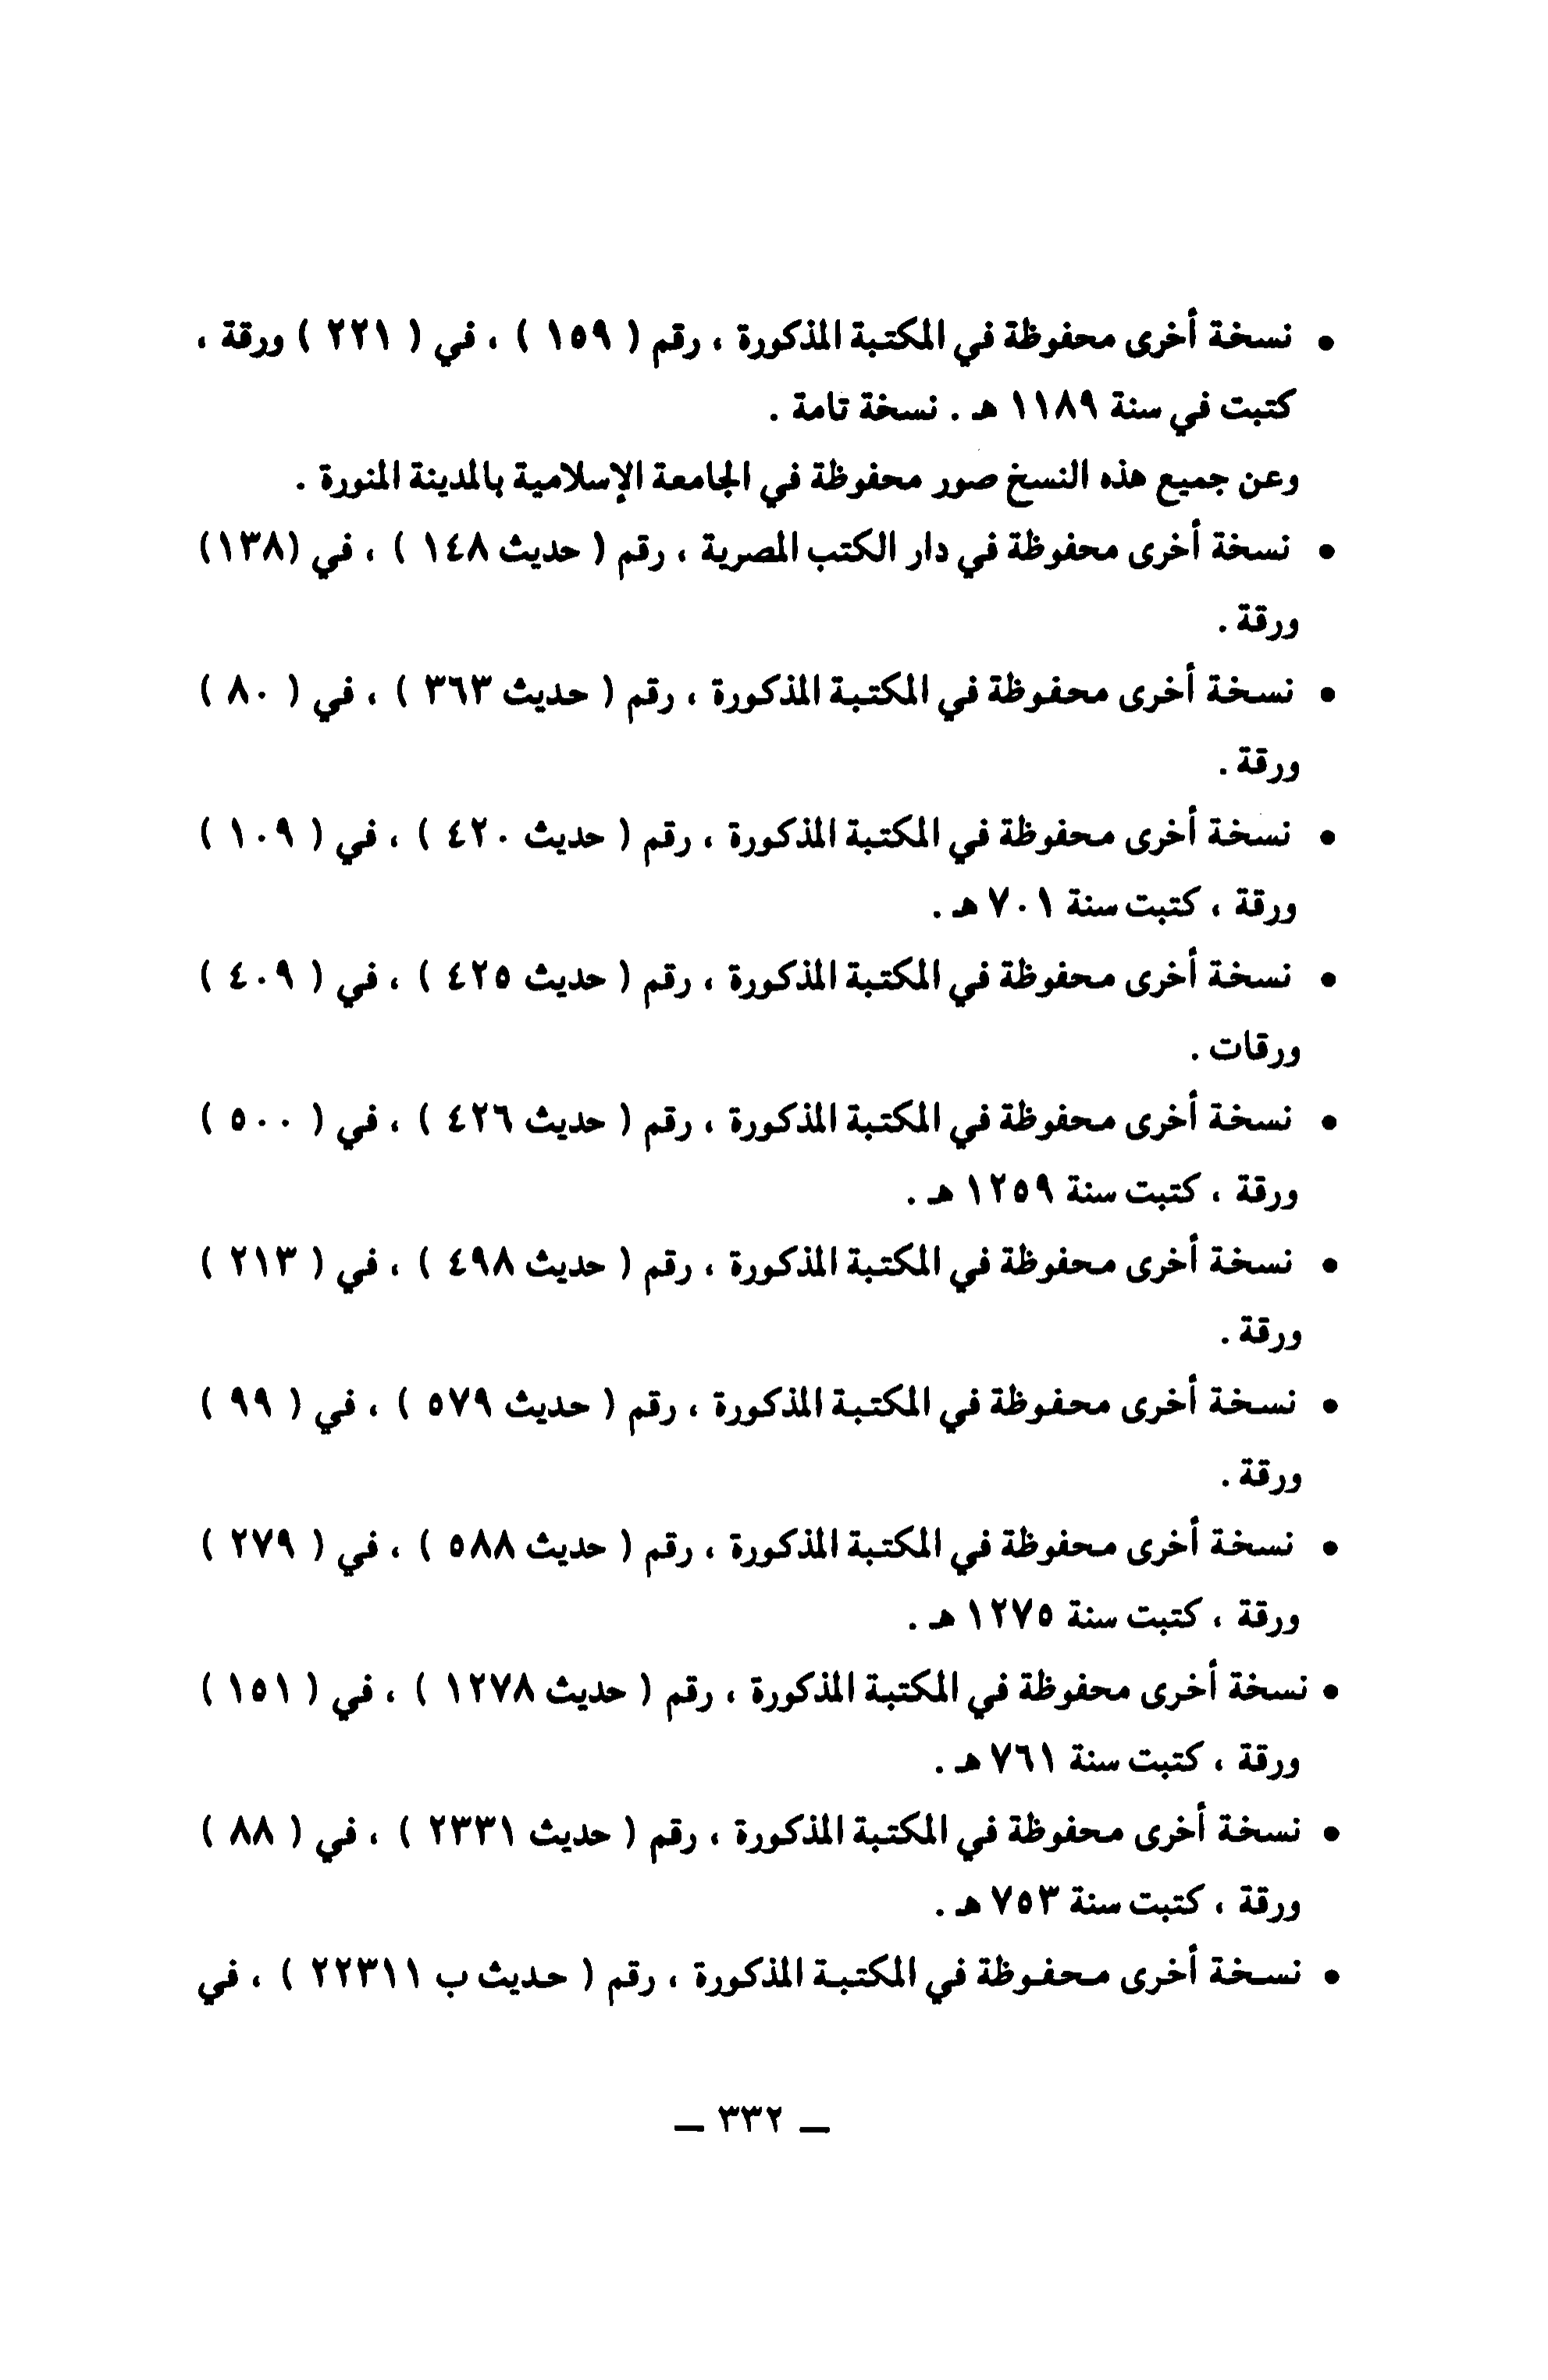 • نسخة أخرى محفوظة في المكتبة المذكورة ، رقم ( ١٥٩ ) ، في ( ٢٢١ ) ورقة ،
كتبت في سنة ١١٨٩ هـ . نسخة تامة .
وعن جميع هذه النسخ صور محفوظة في الجامعة الإسلامية بالمدينة المنورة .
• نسخة أخرى محفوظة في دار الكتب المصرية ، رقم ( حديث ١٤٨ ) ، في (١٣٨)
ورقة .
• نسخة أخرى محفوظة في المكتبة المذكورة ، رقم ( حديث ٣٦٣ ) ، في ( ٨٠ )
ورقة .
• نسخة أخرى محفوظة في المكتبة المذكورة ، رقم ( حديث ٤٢٠ ) ، في ( ١٠٩ )
ورقة ، كتبت سنة ٧٠١ هـ .
• نسخة أخرى محفوظة في المكتبة المذكورة ، رقم ( حديث ٤٢٥ ) ، في ( ٤٠٩ )
ورقات .
• نسخة أخرى محفوظة في المكتبة المذكورة ، رقم ( حديث ٤٢٦ ) ، في ( ٥٠٠ )
ورقة ، كتبت سنة ١٢٥٩ هـ .
• نسخة أخرى محفوظة في المكتبة المذكورة ، رقم ( حديث ٤٩٨ ) ، في ( ٢١٣ )
ورقة .
• نسخة أخرى محفوظة في المكتبة المذكورة ، رقم ( حديث ٥٧٩ ) ، في ( ٩٩ )
ورقة .
• نسخة أخرى محفوظة في المكتبة المذكورة ، رقم ( حديث ٥٨٨ ) ، في ( ٢٧٩ )
ورقة ، كتبت سنة ١٢٧٥ هـ .
• نسخة أخرى محفوظة في المكتبة المذكورة ، رقم ( حديث ١٢٧٨ ) ، في ( ١٥١ )
ورقة ، كتبت سنة ٧٦١ هـ .
• نسخة أخرى محفوظة في المكتبة المذكورة ، رقم ( حديث ٢٣٣١ ) ، في ( ٨٨ )
ورقة ، كتبت سنة ٧٥٣ هـ .
• نسخة أخرى محفوظة في المكتبة المذكورة ، رقم ( حديث ب ٢٢٣١١ ) ، في
— ٣٣٢ —